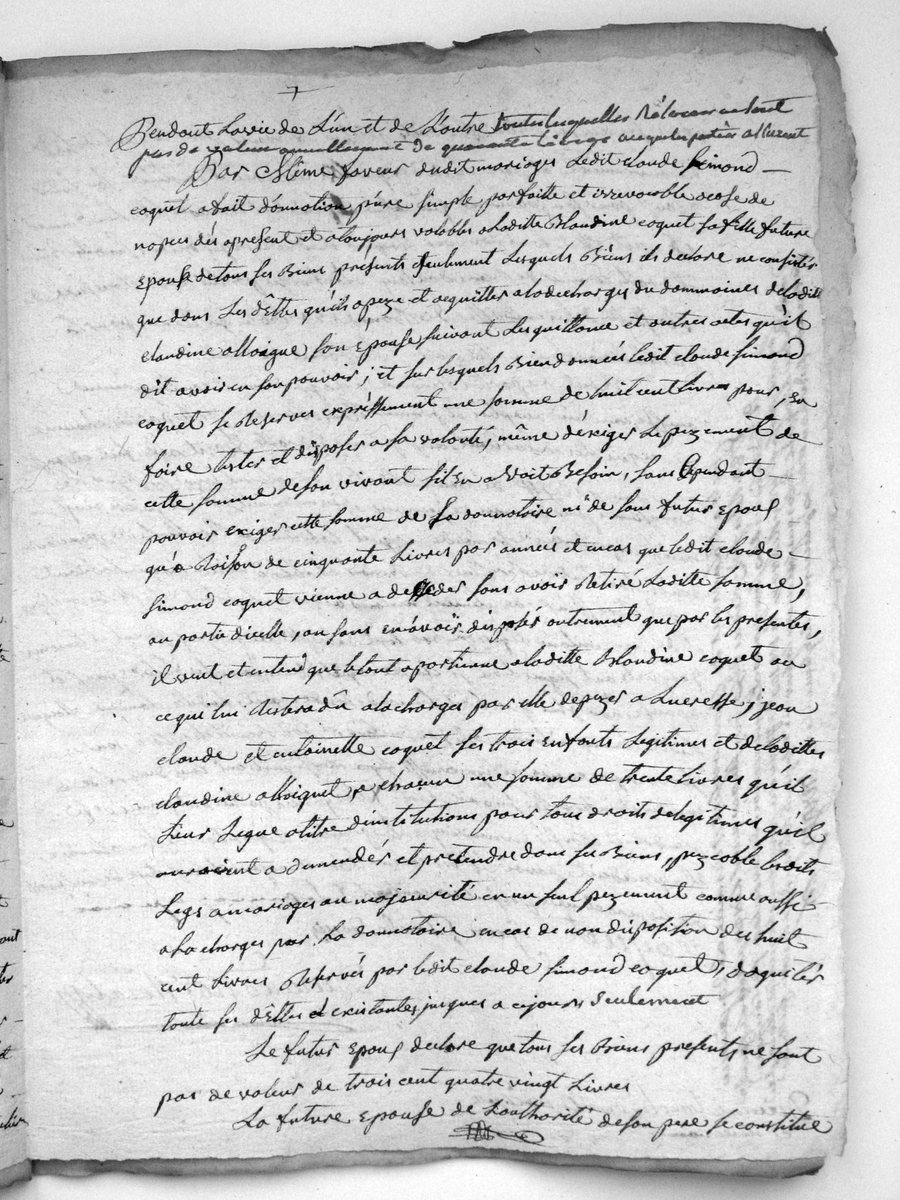 7
Pendant la vie de l'un et de l'autre toutes lesquelles Réserves ne sont
pas de valeur annuellement de quarante livres auxquels partis assurent
Par Même faveur dudit mariages Ledit claude Simond
coquet a fait donnation pure simple parfaitte et irrevocable a cose de
nopces dés apresent et a toujours valables a Laditte Blandine coquet sa fille future
Epouse de tous ses Biens présents seulement Lesquels Biens ils declare ne consister
que dans Les dêttes qu'il a peze et acquitter a la decharges du dommaines deladite
claudine alloigue son Epouse suivant Les quittance et autres actes qu'il
dit avoir en son pouvoir ; et sur lesquels Bien donnees ledit claude Simond
coquet se Reserves expressement une somme de huit cent livres pour, en
faire tester et disposer a sa volonté, même d'éxiger Le pezement de
cette somme de son vivant s'il En a voit Besoin, sans Cependant
pouvoir exiger cette somme de La donnatoire ni de sont futur Epous
qu'a Raison de cinquante Livres par années et en cas que ledit claude
Simond coquet vienne a desseder sans avoir Retiré Laditte somme,
ou partie dicelle, ou sans en avoir disposés autrement que par les presentes,
il veut et entend que le tout apartienne a laditte Blandine coquet ou
ce qui lui Restera dû a la charges par elle de pezer a Lucresse, jean
claude et entoinette coquet ses trois enfants Legitimes et deladittes
claudine alloiguet, a chacun une somme de trente Livres qu'il
Leur Legue a titre d'institutions pour tous droits de legitimes qu'il
auroient a demendés et pretendre dans ses Biens, pezable lesdits
Legs a mariages ou majeurité en un seul pezement comme aussi
a La charges par La donnatoire en cas de non disposition des huit
cent Livres Reservés par ledit claude Simond coquet, d'aquiter
toute ses dêttes et existantes jusques a ce jours seulement
Le futur Epous declare que tous ses Biens presents ne sont
pas de valeur de trois cent quatre vingt Livres
La future Epouse de Lauthorité de son pere se constitue